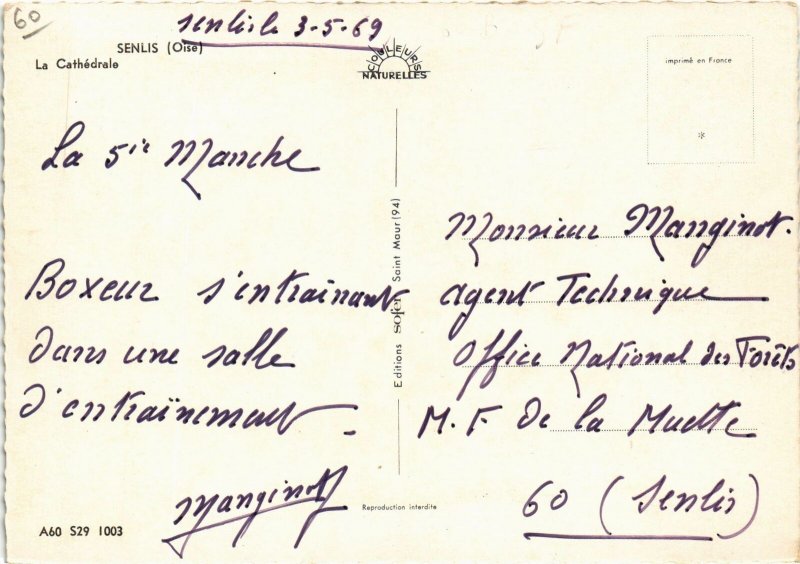 60
Senlis le 3-5-69
SENLIS (Oise)
La Cathédrale
COULEURS
NATURELLES
imprimé en France
*
La 5ie Manche
Boxeur s'entraînant
dans une salle
d'entraïnement.
Manginot
Editions sofer Saint Maur (94)
Monsieur Manginot.
agent Technique
Office National des Forêts
M.F. De la Muette
60 (Senlis)
A60 S29 1003
Reproduction interdite